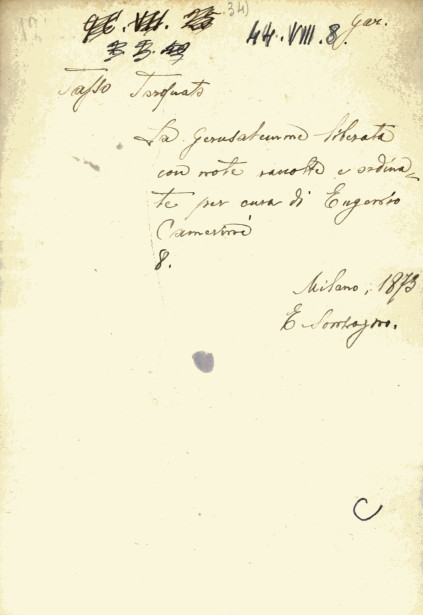 34)
44. VIII. 8. Gar.
Tasso Torquato
La Gerusalemme liberata
con note raccolte e ordina-
te per cura di Eugenio
Camerini
8.
Milano, 1873
E Sonzogno.
C